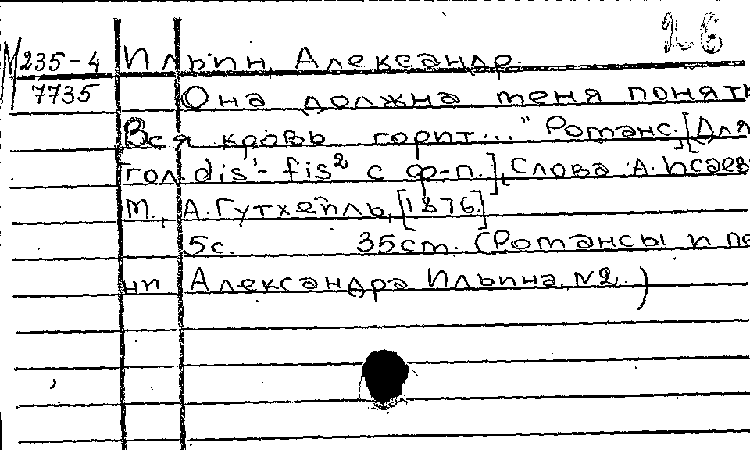 26
М 235-4 Ильин, Александр.
7735 Она должна меня понять
Вся кровь горит..." Романс. [Для
гол. dis¹- fis² с ф-п.], Слова А. Исаев
М., А. Гутхейль, [1876.]
5с. 35см. (Романсы и пе
ни Александра Ильина, №2.)